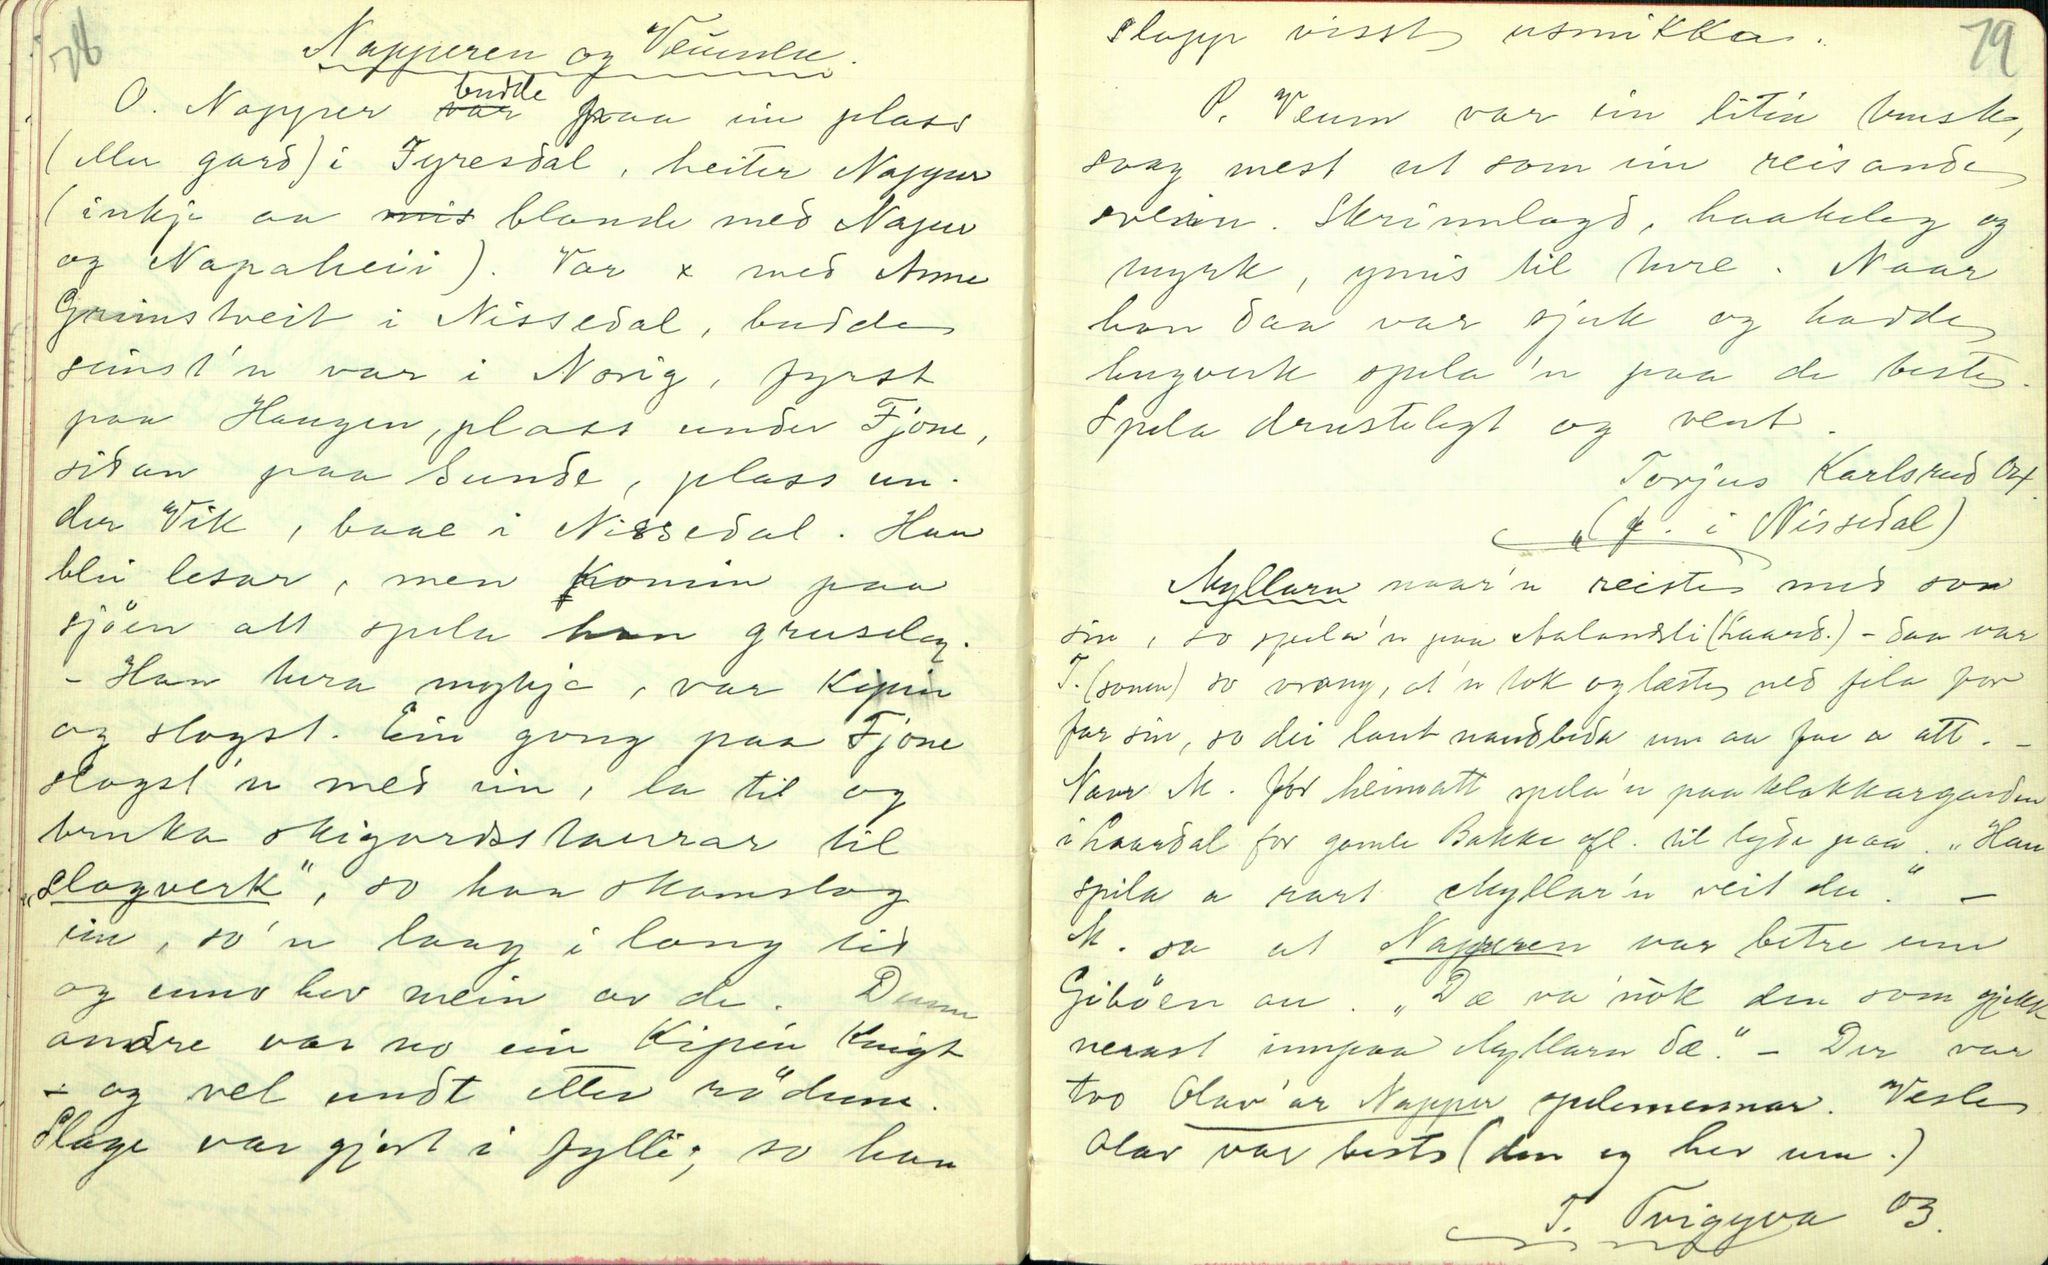 78
Napperen og Veumen.
O. Napper budde paa ein plass
(eller gard) i Fyresdal, heiter Napper
(inkje aa mis blande med Naper
og Napaheii). Var x med Anne
Grimstveit i Nissedal, budde
seinst'n var i Norig, fyrst
paa Haugen, plass under Fjone,
sidan paa Sunde, plass un-
der Vik, baae i Nissedal. Han
blei lesar, men komin paa
sjöen att spela han gruseleg.
- Han tura mykje, var kipin
og slogst. Ein gong paa Fjone
slogst'n med ein, la til og
bruka skigardsstaurar til
"slagverk", so han skamslog
ein, so'n laag i lang tid
og enno hev mein av de. Denne
andre var no ein kipin knigt
- og vel undt etter rö'dune.
Slage var gjort i fylli; so han
79
slapp visst usmikka.
P. Veum var ein litin busk,
saag mest ut som ein reisande
svein. Skrinnlagd, haakeleg og
myrk, ymis til ture. Naar
han daa var sjuk og hadde
hugverk spela'n paa de beste.
Spela drusteleg og vent.
Torjus Karlsrud
"( i Nissedal)
Myllarn naar'n reiste med son
sin, so spela'n paa Aalandsli (Laard.) - daa var
T. (sonen) so vrang, at'n tok og læste ned fela for
far sin, so dei laut naudbeda um aa faa a att. -
Naar M. for heimatt spela'n paa klokkargarden
i Laardal for gamle Bakke ofl. til lyde paa. "Han
spila a rart Myllar'n veit du". -
M. sa at Napperen var betre enn
Giböen au. "Dæ va nok den som gjekk
nerast innpaa Myllarn dæ." - Der var
tvo Olav'ar Napper spelemennar. Vesle
Olav var beste (den eg hev um.)
T. Tvigyva 03.